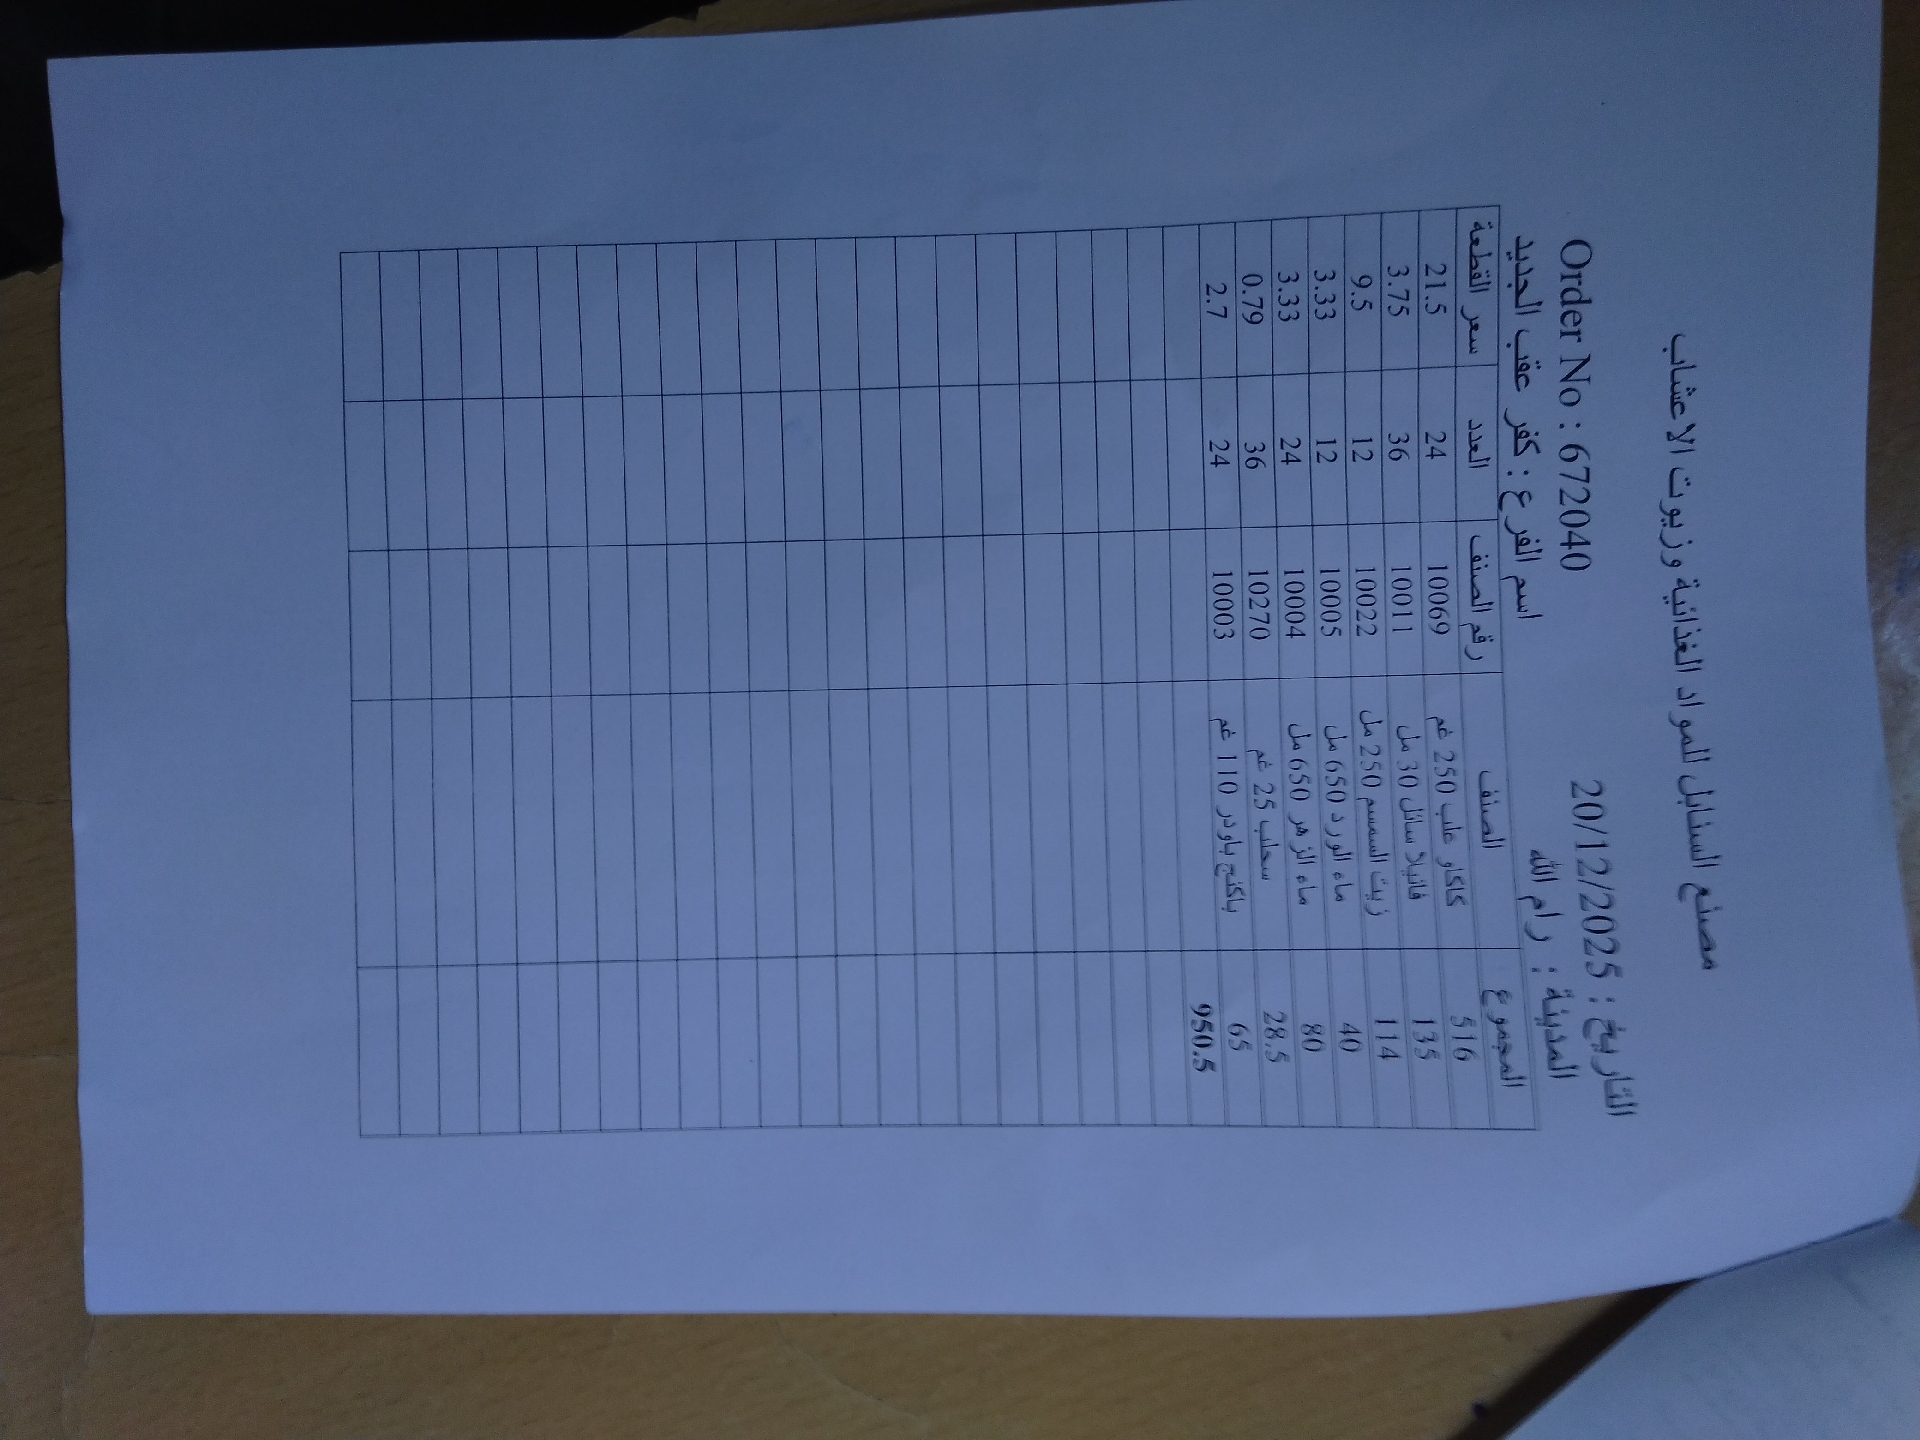 مصنع السنابل للمواد الغذائية وزيوت الاعشاب
Order No : 672040 التاريخ : 20/12/2025
اسم الفرع : كفر عقب الجديد المدينة : رام الله
المجموع الصنف رقم الصنف العدد سعر القطعة
516 كاكاو علب 250 غم 10069 24 21.5
135 فانيلا سائل 30 مل 10011 36 3.75
114 زيت السمسم 250 مل 10022 12 9.5
40 ماء الورد 650 مل 10005 12 3.33
80 ماء الزهر 650 مل 10004 24 3.33
28.5 سحلب 25 غم 10270 36 0.79
65 باكنج باودر 110 غم 10003 24 2.7
950.5